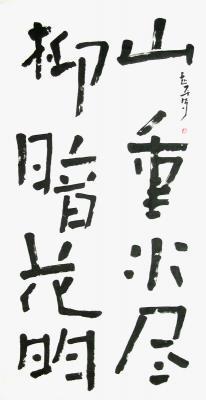 山重水尽
柳暗花明